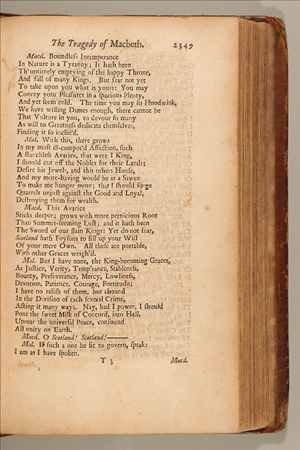 The Tragedy of Macbeth. 2349
Macd. Boundless Intemperance
In Nature is a Tyranny; It hath been
Th'untimely emptying of the happy Throne,
And fall of many Kings. But fear not yet
To take upon you what is yours: You may
Convey your Pleasures in a spacious Plenty,
And yet seem cold. The time you may so Hoodwink,
We have willing Dames enough, there cannot be
That Vulture in you, to devour so many
As will to Greatness dedicate themselves,
Finding it so inclin'd.
Mal. With this, there grows
In my most ill-compos'd Affection, such
A stanchless Avarice, that were I King,
I should cut off the Nobles for their Lands;
Desire his Jewels, and this others House,
And my more-having would be as a Sawce
To make me hunger more; that I should forge
Quarrels unjust against the Good and Loyal,
Destroying them for wealth.
Macd. This Avarice
Sticks deeper; grows with more pernicious Root
Than Summer-seeming Lust; and it hath been
The Sword of our slain Kings: Yet do not fear,
Scotland hath Foysons to fill up your Will
Of your mere Own. All these are portable,
With other Graces weigh'd.
Mal. But I have none, the King-becoming Graces,
As Justice, Verity, Temp'rance, Stableness,
Bounty, Perseverance, Mercy, Lowliness,
Devotion, Patience, Courage, Fortitude;
I have no relish of them, but abound
In the Division of each several Crime,
Acting it many ways. Nay, had I power, I should
Pour the sweet Milk of Concord, into Hell,
Uproar the universal Peace, confound
All unity on Earth.
Macd. O Scotland! Scotland!——
Mal. If such a one be fit to govern, speak:
I am as I have spoken.
T 3 Macd.